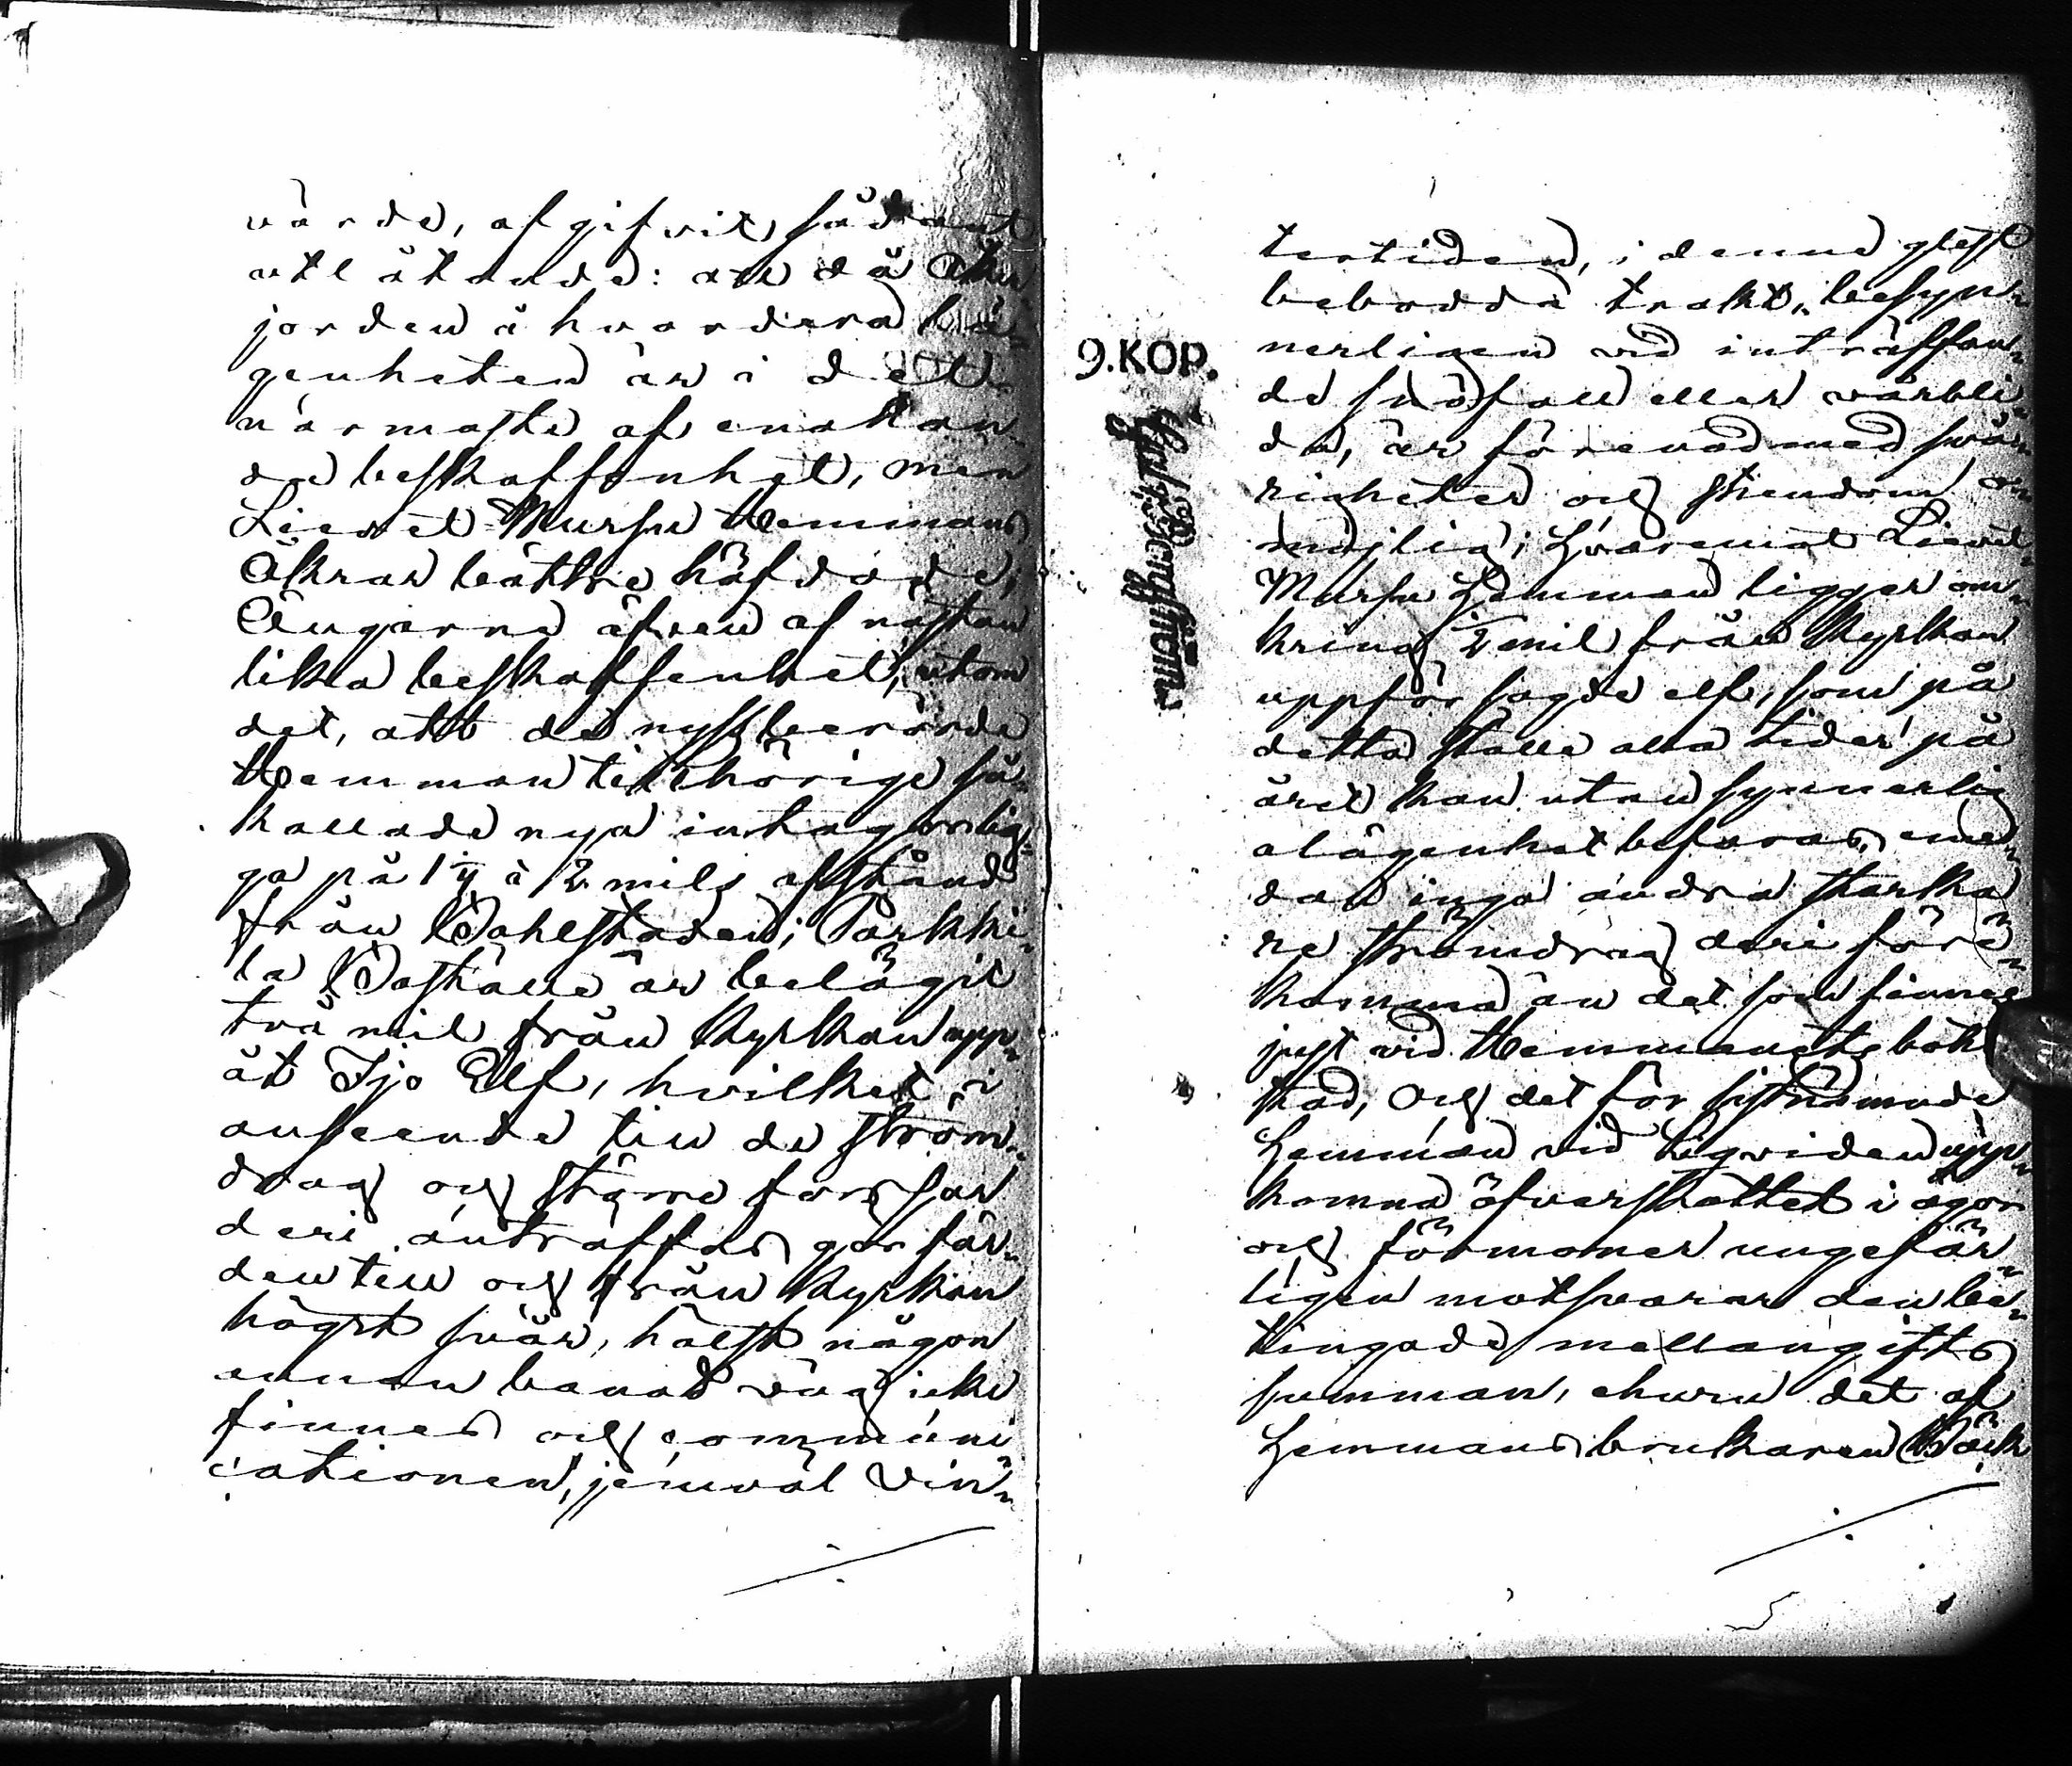 värde, afgifvit sådant
utlåtande: att då Åker
jorden å hvardera lä-
genheten är i det
närmaste af enahan-
da beskaffenhet, men
Lievet Mursu Hemmans
Åkrar bättre häfdade,
Ängarne äfven af nästan
lika beskaffenhet, utom
det, att de nyssberörde
Hemman tillhörige så
kallade nya intagor lig-
ga på 1½ à 2 mils afstånd
från Bohlstaden; Parkki-
la Boställe är belägit
två mil från Kyrkan upp-
åt Ijo Elf, hvilket i
anseende till de ström-
drag och större forssar
deri anträffas gör fär-
den till och från Kyrkan
högst svår, hälst någon
annan banad väg icke
finnes och communi-
cationen, jemväl vin-
tertiden, i denne glest
bebodda trakt, besyn-
nerligen vid inträffan-
de snöfall eller vårbli-
da, är förenad med svå-
righeter och stundom o-
möjlig; hvaremot Lievet
Mursu Hemman ligger om-
kring ½ mil från Kyrkan
uppför sagde elf, som på
detta ställe alla tider på
året kan utan synnerlig
olägenhet befaras, eme-
dan inga andra starka-
re strömdrag deri före-
komma än det som finnes
just vid Hemmanets bohl-
stad, och det för sistnämnde
Hemman vid liqviden upp-
komna öfverskottet i ägor
och förmoner ungefär-
ligen motsvarar den be-
tingade mellangifts
summan, ehuru det af
Hemmansbrukaren Bäck
9.KOP.